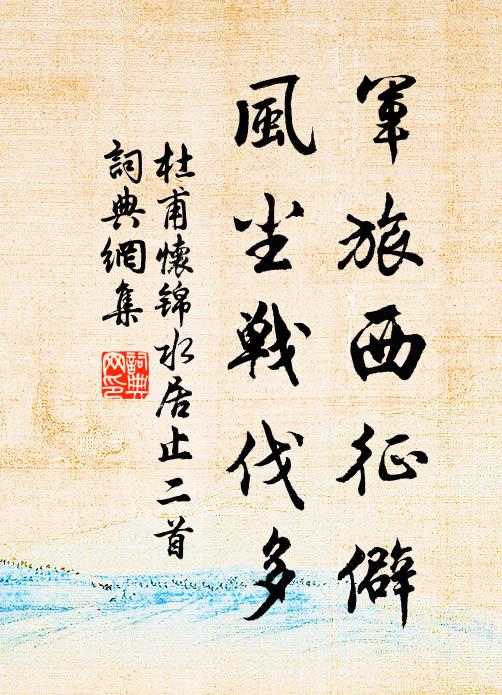 軍旅西征僻
風尘戰伐多
杜甫懷锦水居止二首
詞典網集
詞典
网印